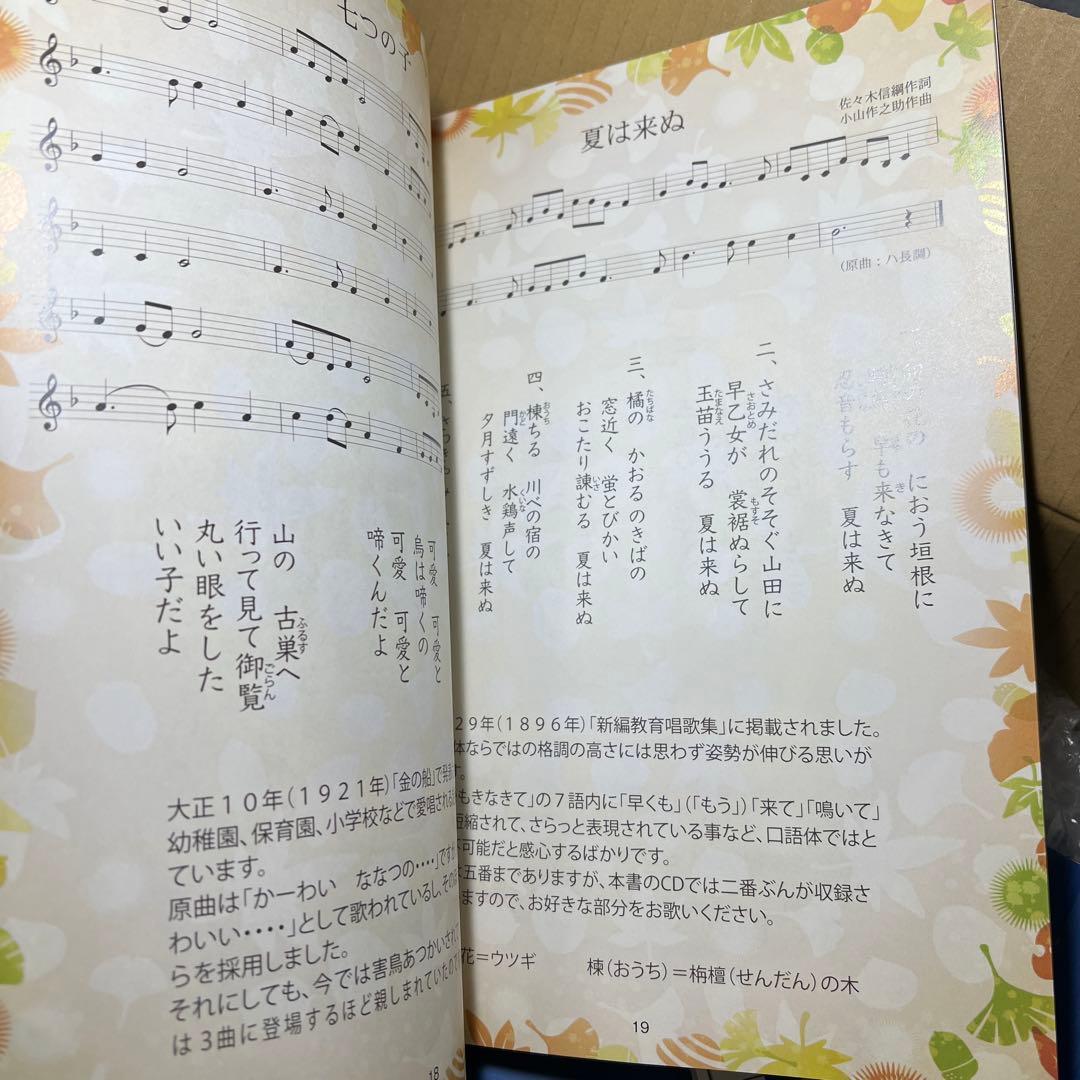 七つの子
可愛 可愛と
烏は啼くの
可愛 可愛と
啼くんだよ
山の 古巣へ
行って見て御覧
丸い眼をした
いい子だよ
大正10年(1921年)「金の船」で発表
幼稚園、保育園、小学校などで愛唱され
ています。
原曲は「かーわい ななつの・・・・」です
わいい・・・・」として歌われているし、その
らを採用しました。
それにしても、今では害鳥あつかいされて
は3曲に登場するほど親しまれていたので
18
夏は来ぬ
佐々木信綱作詞
小山作之助作曲
(原曲:ハ長調)
の におう垣根に
早も来なきて
忍音もらす 夏は来ぬ
二、さみだれのそそぐ山田に
早乙女が 裳裾ぬらして
玉苗ううる 夏は来ぬ
三、橘の かおるのきばの
窓近く 蛍とびかい
おこたり諌むる 夏は来ぬ
四、楝ちる 川べの宿の
門遠く 水鶏声して
夕月すずしき 夏は来ぬ
五、
29年(1896年)「新編教育唱歌集」に掲載されました。
体ならではの格調の高さには思わず姿勢が伸びる思いが
す。
もきなきて」の7語内に「早くも」(「もう」)「来て」「鳴いて」
短縮されて、さらっと表現されている事など、口語体ではと
可能だと感心するばかりです。
五番までありますが、本書のCDでは二番ぶんが収録さ
ますので、お好きな部分をお歌いください。
花=ウツギ 楝(おうち)=栴檀(せんだん)の木
19